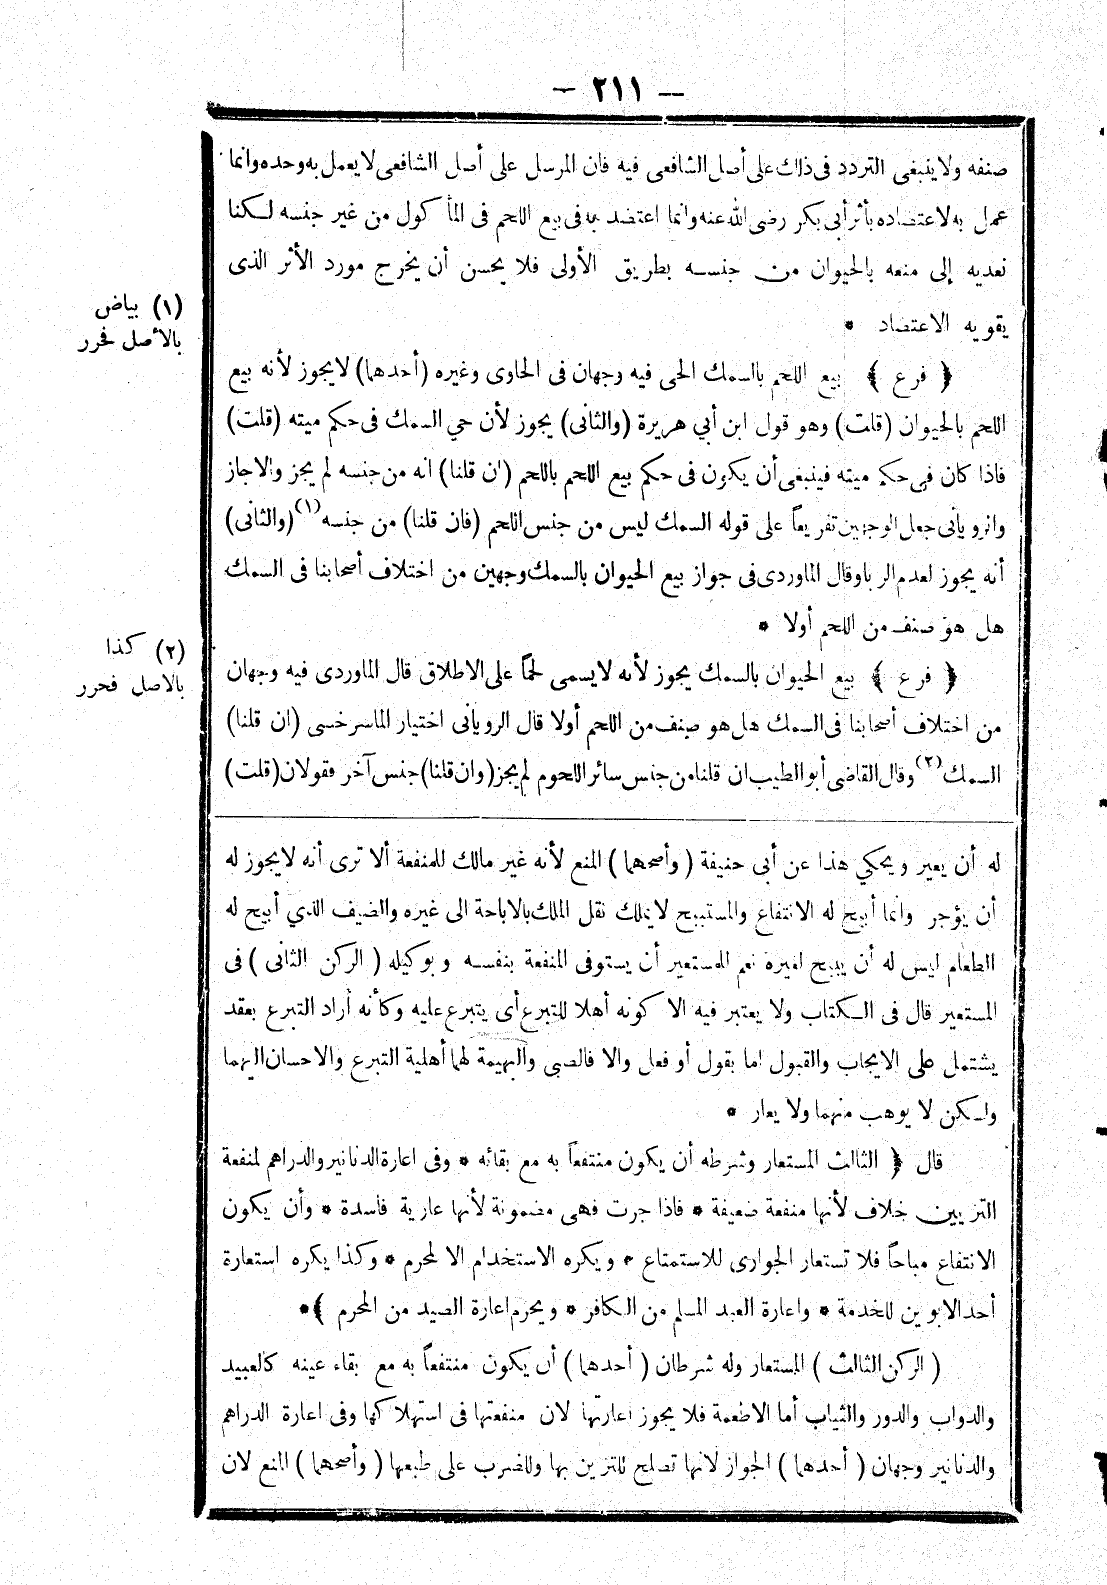 — ٢١١ —
صنفه ولا ينبغى التردد فى ذلك على أصل الشافعى فيه فان المرسل على أصل الشافعى لا يعمل به وحده وانما
عمل به لاعتضاده بأثر أبى بكر رضى الله عنه وانما اعتضد به فى بيع اللحم فى المأكول من غير جنسه لكنا
نعديه إلى منعه بالحيوان من جنسه بطريق الأولى فلا يحسن أن يخرج مورد الأثر الذى
يقويه الاعتضاد *
(١) بياض
بالأصل فحرر
﴿ فرع ﴾ بيع اللحم بالسمك الحى فيه وجهان فى الحاوى وغيره (أحدهما) لا يجوز لأنه بيع
اللحم بالحيوان (قلت) وهو قول ابن أبي هريرة (والثانى) يجوز لأن حي السمك فى حكم ميته (قلت)
فاذا كان فى حكم ميته فينبغى أن يكون فى حكم بيع اللحم باللحم (ان قلنا) انه من جنسه لم يجز والا جاز
والرويانى جعل الوجهين تفريعاً على قوله السمك ليس من جنس اللحم (فان قلنا) من جنسه (١) (والثانى)
أنه يجوز لعدم الربا وقال الماوردى فى جواز بيع الحيوان بالسمك وجهين من اختلاف أصحابنا فى السمك
هل هو صنف من اللحم أولا *
(٢) كذا
بالاصل فحرر
﴿ فرع ﴾ بيع الحيوان بالسمك يجوز لأنه لا يسمى لحمًا على الاطلاق قال الماوردى فيه وجهان
من اختلاف أصحابنا فى السمك هل هو صنف من اللحم أولا قال الرويانى اختيار الماسرخسى (ان قلنا)
السمك (٢) وقال القاضى أبو الطيب ان قلنا من جنس سائر اللحوم لم يجز (وان قلنا) جنس آخر فقولان (قلت)
له أن يعير ويحكي هذا عن أبى حنيفة ( وأصحهما ) المنع لأنه غير مالك للمنفعة ألا ترى أنه لا يجوز له
أن يؤجر وانما أبيح له الانتفاع والمستبيح لا يملك نقل الملك بالاباحة الى غيره والضيف الذي أبيح له
الطعام ليس له أن يبيح لغيره نعم للمستعير أن يستوفى المنفعة بنفسه وبوكيله ( الركن الثانى ) فى
المستعير قال فى الكتاب ولا يعتبر فيه الا كونه أهلا للتبرع أى يتبرع عليه وكأنه أراد التبرع بعقد
يشتمل على الايجاب والقبول اما بقول أو فعل والا فالصبى والبهيمة لهما أهلية التبرع والاحسان اليهما
ولكن لا يوهب منهما ولا يعار *
قال ﴿ الثالث المستعار وشرطه أن يكون منتفعاً به مع بقائه * وفى اعارة الدنانير والدراهم لمنفعة
التزيين خلاف لأنها منفعة ضعيفة * فاذا جرت فهى مضمونة لأنها عارية فاسدة * وأن يكون
الانتفاع مباحاً فلا تستعار الجوارى للاستمتاع * ويكره الاستخدام الا لمحرم * وكذا يكره استعارة
أحد الابوين للخدمة * واعارة العبد المسلم من الكافر * ويحرم اعارة الصيد من المحرم ﴾ *
( الركن الثالث ) المستعار وله شرطان ( أحدهما ) أن يكون منتفعاً به مع بقاء عينه كالعبيد
والدواب والدور والثياب أما الاطعمة فلا يجوز اعارتها لان منفعتها فى استهلاكها وفى اعارة الدراهم
والدنانير وجهان ( أحدهما ) الجواز لانها تصلح للتزين بها وللضرب على طبعها ( وأصحهما ) المنع لان